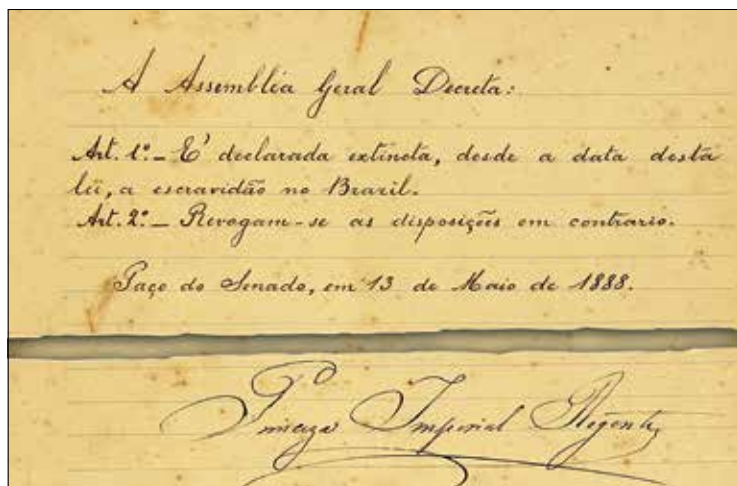 A Assembléa Geral Decreta:
Art. 1º_ E' declarada extincta, desde a data desta
lei, a escravidão no Brazil.
Art. 2º_ Revogam-se as disposições em contrario.
Paço do Senado, em 13 de Maio de 1888.
Princeza Imperial Regente